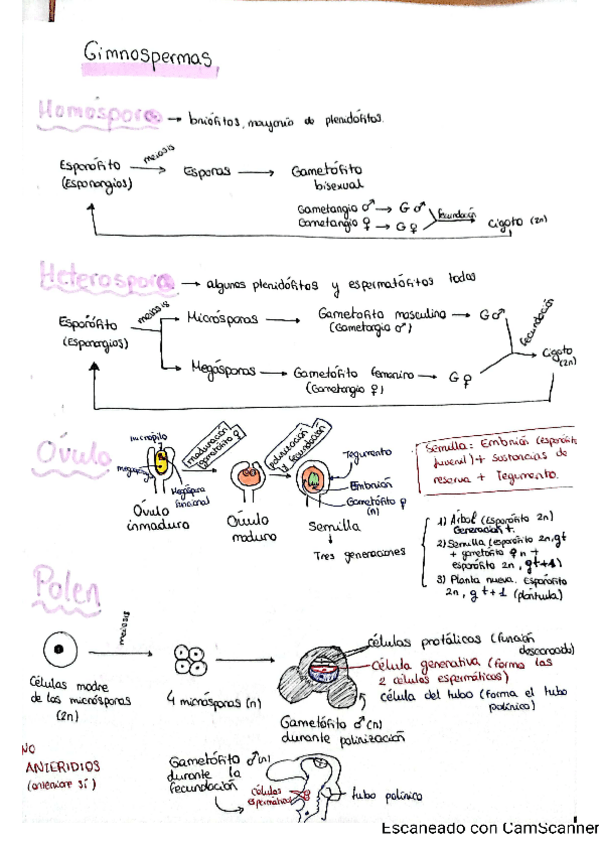 Gimnospermas
Homóspora → briófitos, mayoría de pteridófitos.
Esporófito (Esporangios)
meiosis
Esporas
Gametófito bisexual
Gametangio ♂ → G ♂
Gametangio ♀ → G ♀
fecundación
Cigoto (2n)
Heterospora → algunos pteridófitos y espermatófitos todos
Esporófito (Esporangios)
meiosis
Micrósporas → Gametofito masculino → G♂
(Gametangio ♂)
Megásporas → Gametófito femenino → G♀
(Gametangio ♀)
fecundación
Cigoto (2n)
Óvulo
micrópilo
Megáspora funcional
Óvulo inmaduro
maduración gametofito ♀
Óvulo maduro
polinización y fecundación
Tegumento
Embrión
Gametófito ♀ (n)
Semilla
↓
Tres generaciones
Semilla: Embrión (esporófito
juvenil) + Sustancias de
reserva + Tegumento.
1) Árbol (Esporófito 2n)
Generación t.
2) Semilla (esporófito 2n, gt
+ gametofito ♀ n +
esporófito 2n, gt+1)
3) Planta nueva. Esporófito
2n, gt+1 (plántula)
Polen
Células madre
de las micrósporas
(2n)
meiosis
4 micrósporas (n)
células protálicas (función
desconocida)
Célula generativa (forma las
2 células espermáticas)
célula del tubo (forma el tubo
polínico)
Gametófito ♂ (n)
durante polinización
NO
ANTERIDIOS
(anteriore sí)
Gametófito ♂ (n)
durante la
fecundación
células espermáticas
tubo polínico
Escaneado con CamScanner